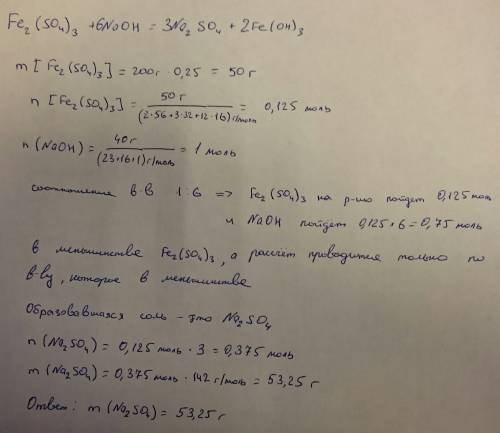 Fe₂(SO₄)₃ + 6NaOH = 3Na₂SO₄ + 2Fe(OH)₃
m [Fe₂(SO₄)₃] = 200г · 0,25 = 50 г
n [Fe₂(SO₄)₃] = 50 г / (2·56+3·32+12·16) г/моль = 0,125 моль
n (NaOH) = 40г / (23+16+1) г/моль = 1 моль
соотношение в-в 1:6 => Fe₂(SO₄)₃ на р-цию пойдет 0,125 моль
и NaOH пойдет 0,125·6 = 0,75 моль
в меньшинстве Fe₂(SO₄)₃, а рассчёт проводится только по
в-ву, которое в меньшинстве
Образовавшаяся соль - это Na₂SO₄
n (Na₂SO₄) = 0,125 моль · 3 = 0,375 моль
m (Na₂SO₄) = 0,375 моль · 142 г/моль = 53,25 г
Ответ: m (Na₂SO₄) = 53,25 г